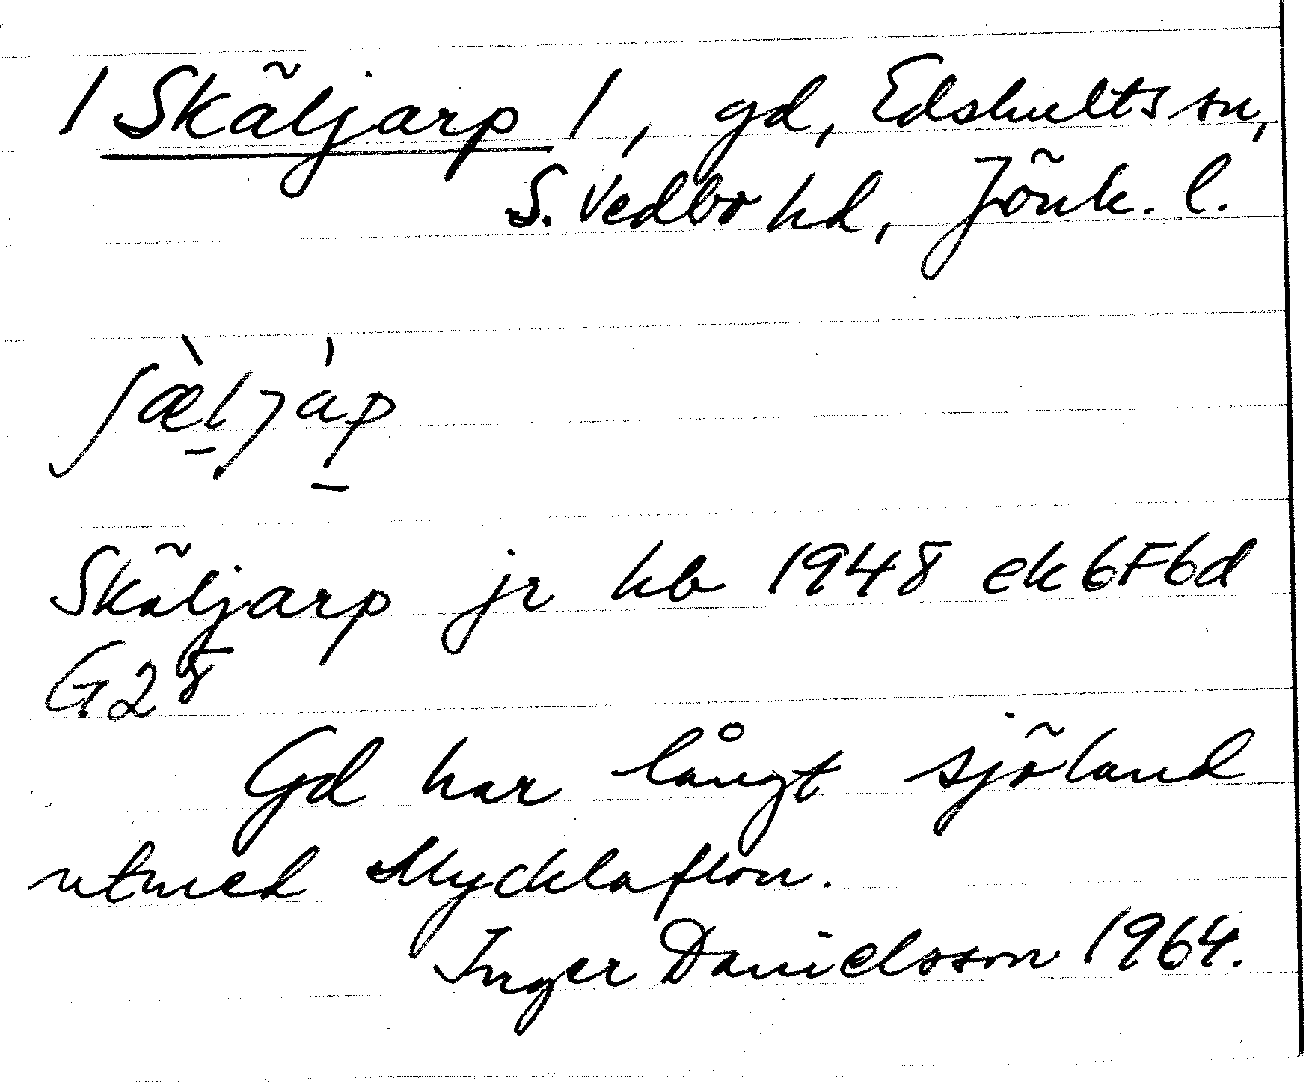 / Skäljarp /, gd, Edshults sn,
S. Vedbo hd, Jönk. l.
ʃæ̀ljáp
Skäljarp jr hb 1948 ek 6F6d
G28
Gd har långt sjöland
utmed Mycklaflon.
Inger Danielsson 1964.